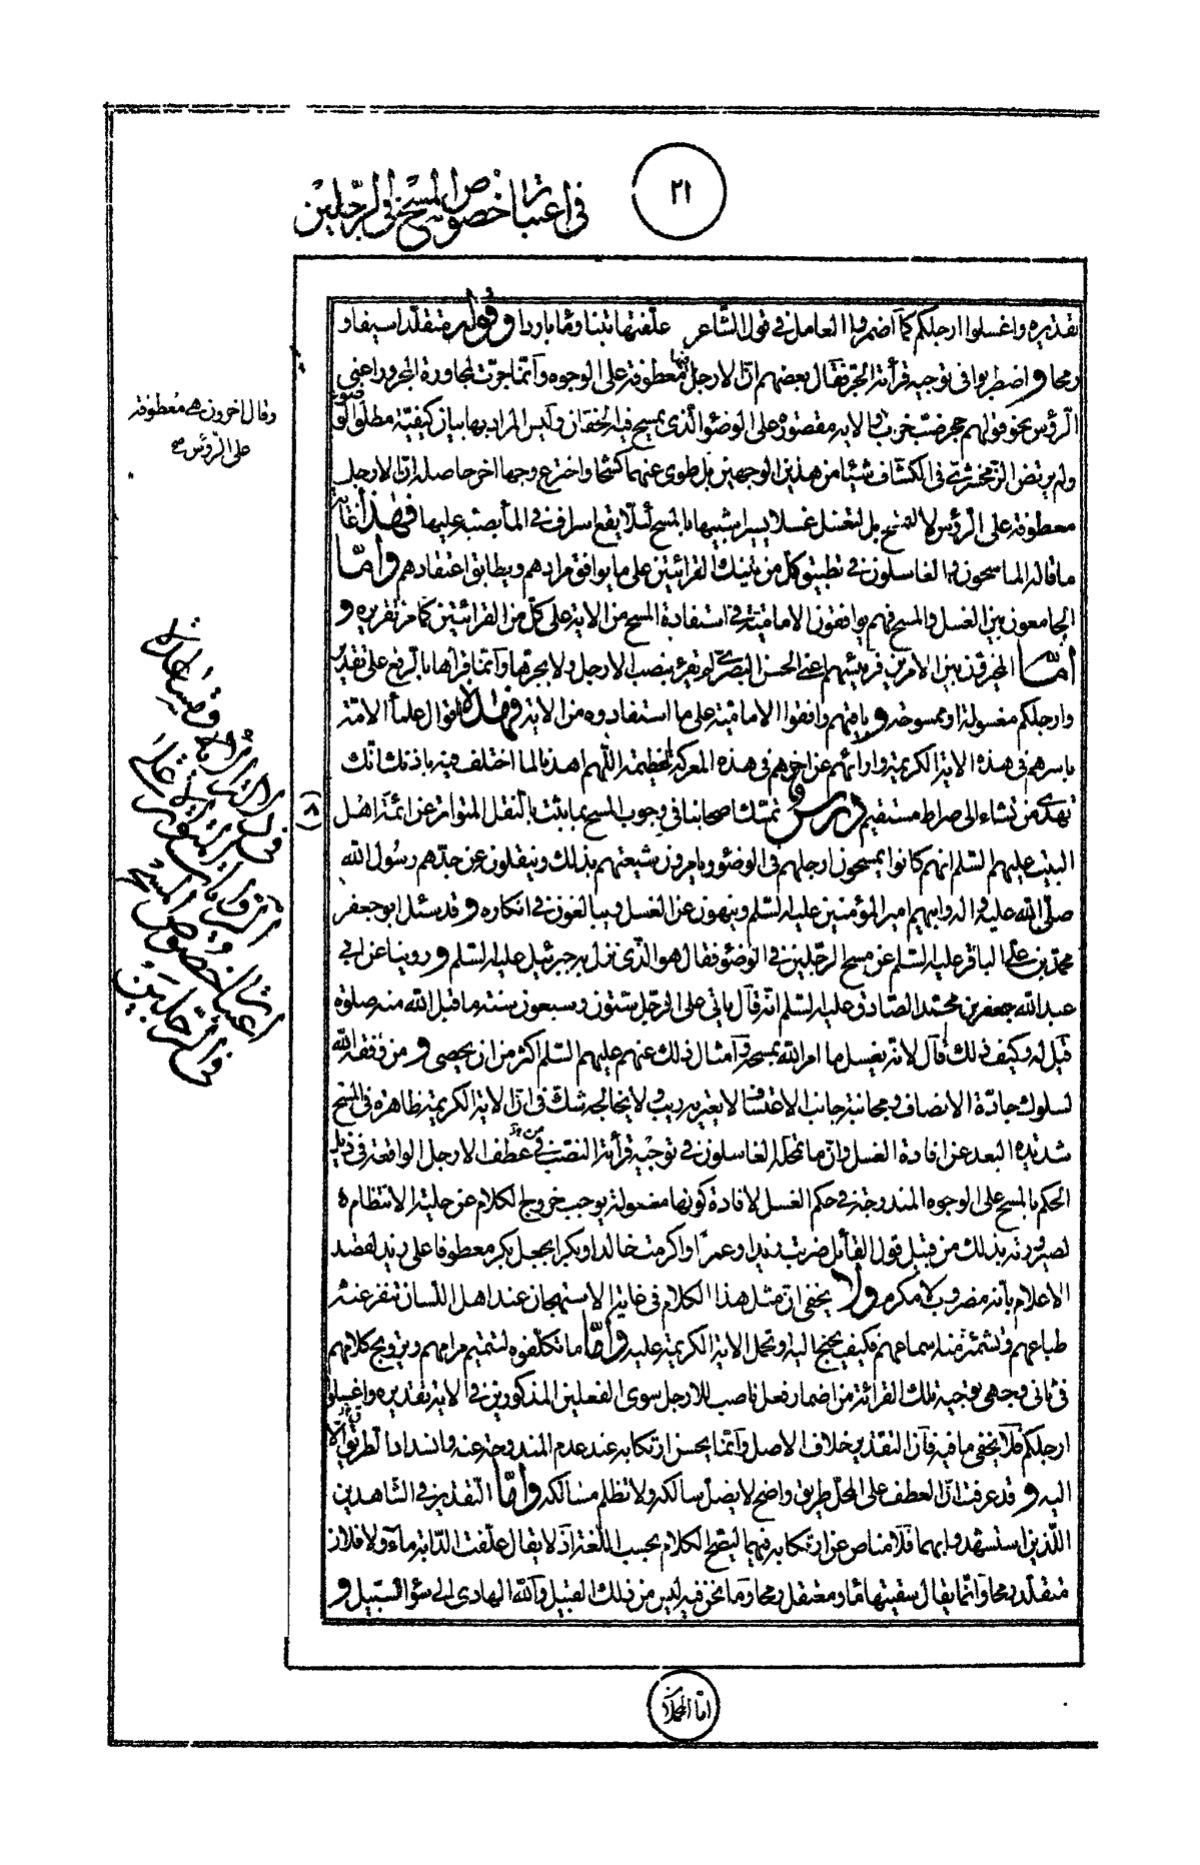 ٢١
في اعتبار خصوص المسح في الرجلين
تقديره واغسلوا ارجلكم كما اضمروا العامل في قول الشاعر علفتها تبنا وماء باردا وقوله متقلدا سيفا و
رمحا واضطربوا في توجيه قرأئة الجر فقال بعضهم ان الارجل فيها معطوفة على الوجوه وانما جرت لمجاورة المجرور اعني
الرؤس نحو قولهم جحر ضب خرب والاية مقصورة على الوضوء الذي يمسح فيه الخفان وليس المراد بها بيان كيفية مطلق الوضوء
ولم يرتض الزمخشري في الكشاف شيئا من هذين الوجهين بل طوى عنهما كشحا واخترع وجها اخر حاصله ان الارجل
معطوفة على الرؤس لا لتمسح بل لتغسل غسلا يسيرا شبيها بالمسح لئلا يقع اسراف في الماء بصبه عليها فهذا غاية
ما قاله الماسحون والغاسلون في تطبيق كل من تينك القرائتين على ما يوافق مرادهم ويطابق اعتقادهم واما
الجامعون بين الغسل والمسح فهم يوافقون الامامية في استفادة المسح من الاية على كل من القرائتين كما مر تقريره و
اما المخيرون بين الامرين فرئيسهم اعني الحسن البصري لم يقرء بنصب الارجل ولا بجرها وانما قرأها بالرفع على تقدير
وارجلكم مغسولة او ممسوحة وباقيهم وافقوا الامامية على ما استفادوه من الاية فهذه اقوال علماء الامة
باسرهم في هذه الاية الكريمة وارائهم عن اخرهم في هذه المعركة العظيمة اللهم اهدنا لما اختلف فيه باذنك انك
تهدي من تشاء الى صراط مستقيم درس وتمسك اصحابنا في وجوب المسح بما يثبت بالنقل المتواتر عن ائمة اهل
البيت عليهم السلم انهم كانوا يمسحون ارجلهم في الوضوء ويامرون شيعتهم بذلك وينقلون عن جدهم رسول الله
صلى الله عليه واله وابيهم امير المؤمنين عليه السلم وينهون عن الغسل ويبالغون في انكاره وقد سئل ابو جعفر
محمد بن علي الباقر عليه السلم عن مسح الرجلين في الوضوء فقال هو الذي نزل به جبرئيل عليه السلم وروينا عن ابي
عبد الله جعفر بن محمد الصادق عليه السلم انه قال ياتي على الرجل ستون وسبعون سنة ما قبل الله منه صلوة
قيل له وكيف ذلك قال لانه يغسل ما امر الله بمسحه وامثال ذلك عنهم عليهم السلم اكثر من ان يحصى ومن وفقه الله
لسلوك جادة الانصاف ومجانبة جانب الاعتساف لا يعتريه ريب ولا يخالجه شك في ان الاية الكريمة ظاهرة في المسح
شديدة البعد عن افادة الغسل وان ما تمحله الغاسلون في توجيه قرأئة النصب من عطف الارجل الواقعة في ذيل
الحكم بالمسح على الوجوه المندرجة في حكم الغسل لافادة كونها مغسولة يوجب خروج الكلام عن حلية الانتظام
لصيرورته بذلك من قبيل قول القائل ضربت زيدا وعمرا واكرمت خالدا وبكرا بجعل بكر معطوفا على زيد لقصد
الاعلام بانه مضروب لا مكرم ولا يخفى ان مثل هذا الكلام في غاية الاستهجان عند اهل اللسان تنفر عنه
طباعهم وتشمئز منه اسماعهم فكيف يجنح اليه وتحمل الاية الكريمة عليه واما ما تكلفوه لتتميم مرامهم وترويج كلامهم
في ثاني وجهي توجيه تلك القرائة من اضمار فعل ناصب للارجل سوى الفعلين المذكورين في الاية بتقديره واغسلوا
ارجلكم فلا يخفى ما فيه فان التقدير خلاف الاصل وانما يحسن ارتكابه عند عدم المندوحة عنه وانسداد الطريق الا
اليه وقد عرفت ان العطف على المحل طريق واضح لا يضل سالكه ولا تظلم مسالكه واما التقدير في الشاهدين
اللذين استشهدوا بهما فلا مناص عن ارتكابه فيهما ليصح الكلام بحسب اللغة اذ لا يقال علفت الدابة ماء ولا فلان
متقلد رمحا وانما يقال سقيتها ماء ومعتقل رمحا وما نحن فيه ليس من ذلك القبيل والله الهادي الى سواء السبيل و
اما المحملان
وقال اخرون هي معطوفة
على الرؤس صح
(٨)
اعتبار خصوص المسح
في الرجلين